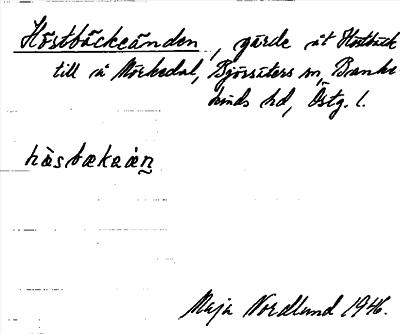 Höstbäckeänden, gärde åt Höstbäck
till å Mörkedal, Björsäters sn, Banke-
kinds hd, Östg. l.
hàsbækaæ̀n̥
Maja Nordlund 1946.